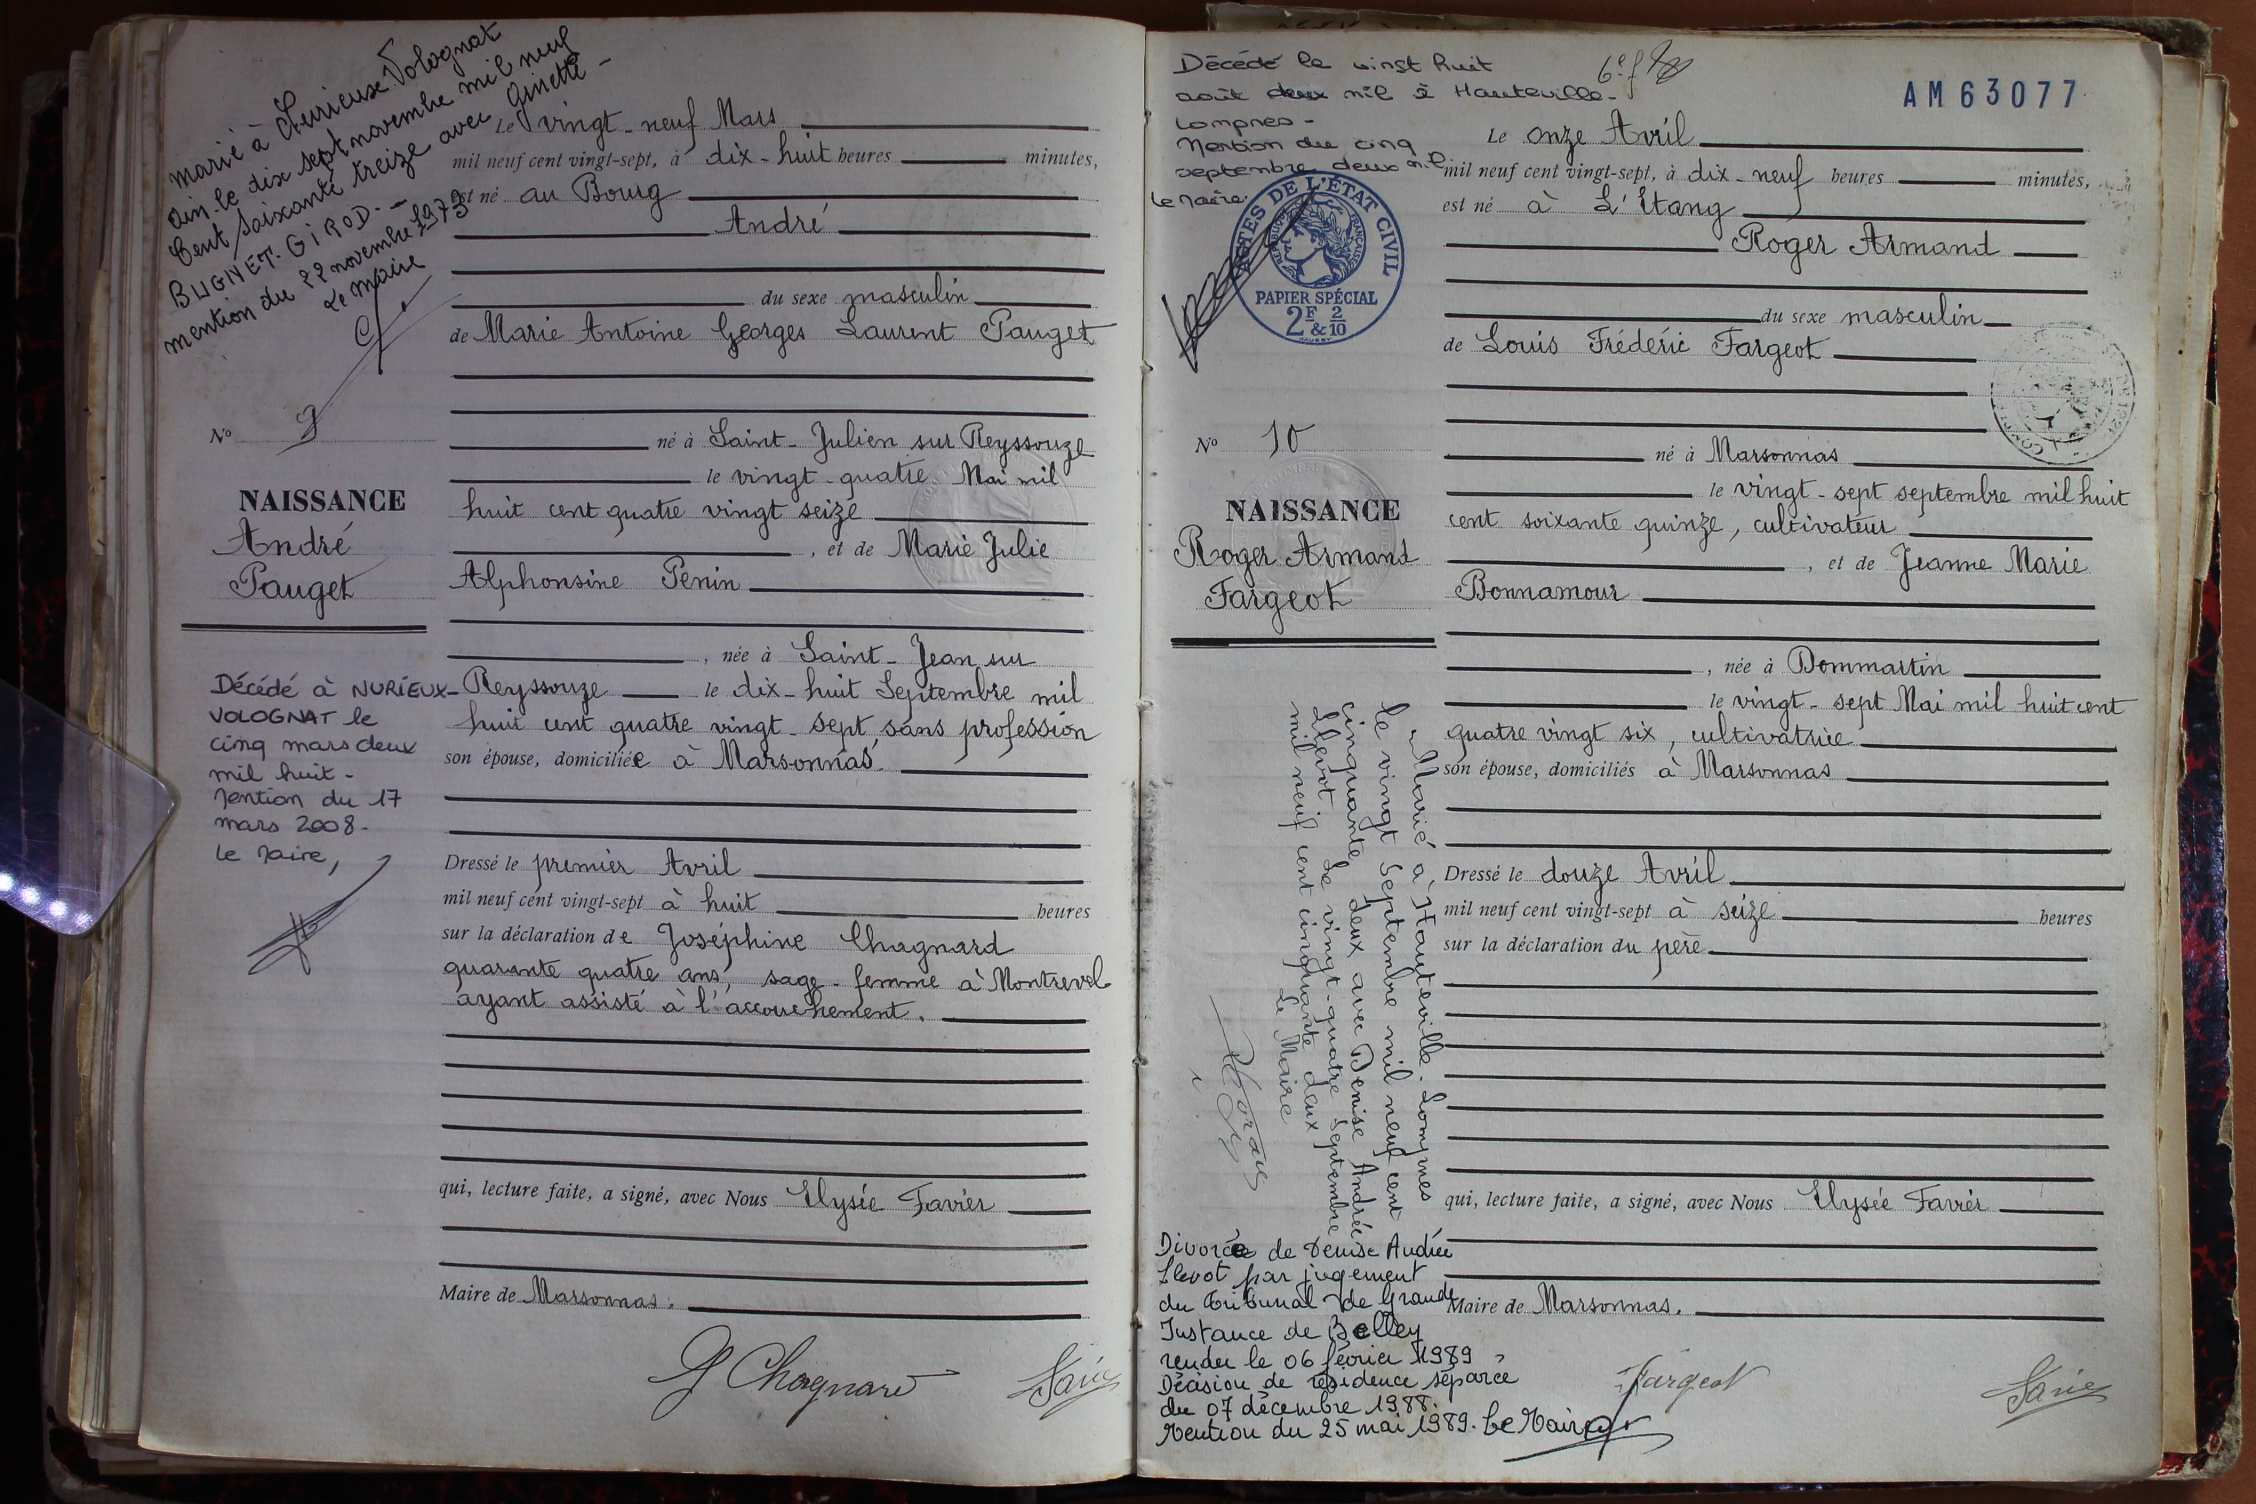 marié à Nurieux-Volognat
Ain-le dix sept novembre mil neuf
Cent soixante treize avec Ginette -
BUGNET-GIROD. -
mention du 22 novembre 1973
Le Maire
Le vingt-neuf Mars
mil neuf cent vingt-sept, à dix-huit heures minutes,
est né au Bourg
André
du sexe masculin
de Marie Antoine Georges Laurent Pauget
né à Saint-Julien sur Reyssouze
le vingt-quatre Mai mil
huit cent quatre vingt seize
, et de Marie Julie
Alphonsine Penin
, née à Saint-Jean sur
Reyssouze le dix-huit Septembre mil
huit cent quatre vingt-sept, sans profession
son épouse, domiciliée à Marsonnas.
Dressé le premier Avril
mil neuf cent vingt-sept à huit heures
sur la déclaration de Joséphine Chagnard
quarante quatre ans, sage-femme à Montrevel
ayant assisté à l'accouchement.
qui, lecture faite, a signé, avec Nous Elysée Favier
Maire de Marsonnas.
J Chagnard Favier
No 9
NAISSANCE
André
Pauget
Décédé à NURIEUX-
VOLOGNAT le
cinq mars deux
mil huit-
Mention du 17
mars 2008-
Le Maire,
Décédé le vingt huit
août deux mil à Hauteville-
Lompnes-
Mention du cinq
septembre deux mil
Le Maire.
6e f
AM63077
ACTES DE L'ÉTAT CIVIL
RÉPUBLIQUE FRANÇAISE
PAPIER SPÉCIAL
2F & 2/10
Le onze Avril
mil neuf cent vingt-sept, à dix-neuf heures minutes,
est né à L'Etang
Roger Armand
du sexe masculin
de Louis Frédéric Fargeot
né à Marsonnas
le vingt-sept septembre mil huit
cent soixante quinze, cultivateur
, et de Jeanne Marie
Bonnamour
, née à Dommartin
le vingt-sept Mai mil huit cent
quatre vingt six, cultivatrice
son épouse, domiciliés à Marsonnas
Dressé le douze Avril
mil neuf cent vingt-sept à seize heures
sur la déclaration du père
qui, lecture faite, a signé, avec Nous Elysée Favier
Maire de Marsonnas.
Fargeot Favier
No 10
NAISSANCE
Roger Armand
Fargeot
Marié à Hauteville-Lompnes
le vingt septembre mil neuf cent
cinquante deux avec Denise Andrée
Llevot Le vingt-quatre septembre
mil neuf cent cinquante deux
Le Maire
Divorcé de Denise Andrée
Llevot par jugement
du Tribunal de Grande
Instance de Belley
rendu le 06 février 1989
Décision de résidence séparée
du 07 décembre 1988.
Mention du 25 mai 1989. Le Maire